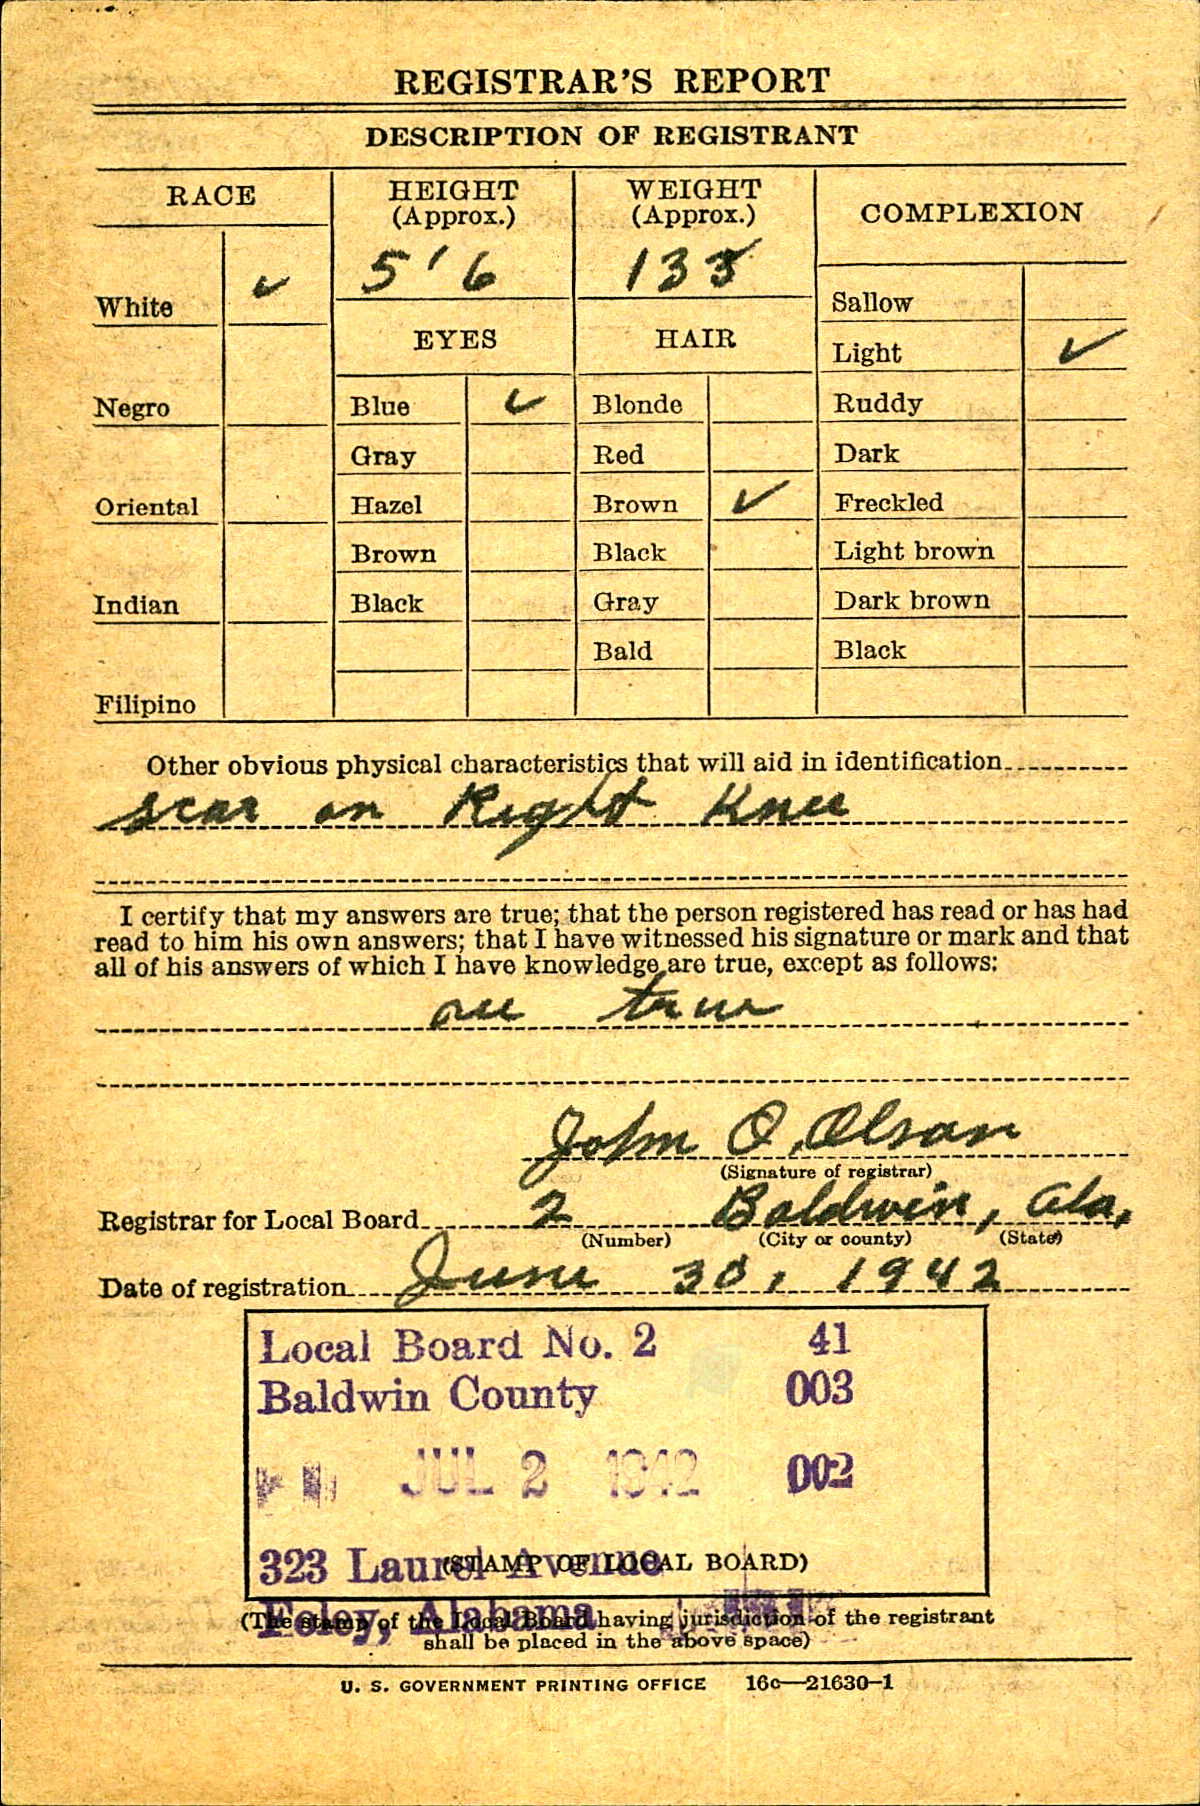 REGISTRAR'S REPORT
DESCRIPTION OF REGISTRANT
RACE
HEIGHT
(Approx.)
WEIGHT
(Approx.)
COMPLEXION
5' 6
133
White ✓
EYES
HAIR
Sallow
Light ✓
Negro
Blue ✓
Blonde
Ruddy
Gray
Red
Dark
Oriental
Hazel
Brown ✓
Freckled
Brown
Black
Light brown
Indian
Black
Gray
Dark brown
Bald
Black
Filipino
Other obvious physical characteristics that will aid in identification
scar on Right Knee
I certify that my answers are true; that the person registered has read or has had
read to him his own answers; that I have witnessed his signature or mark and that
all of his answers of which I have knowledge are true, except as follows:
true
John O. Olson
(Signature of registrar)
Registrar for Local Board 2 Baldwin, Ala.
(Number) (City or county) (State)
Date of registration June 30, 1942
Local Board No. 2 41
Baldwin County 003
JUL 2 1942 002
323 Laurel Avenue
(STAMP OF LOCAL BOARD)
Foley, Alabama
(The stamp of the Local Board having jurisdiction of the registrant
shall be placed in the above space)
U. S. GOVERNMENT PRINTING OFFICE 16c—21630-1